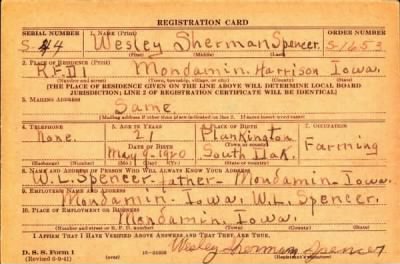 REGISTRATION CARD
SERIAL NUMBER 1. NAME (Print) ORDER NUMBER
S-44 Wesley Sherman Spencer S-1653
(First) (Middle) (Last)
2. PLACE OF RESIDENCE (Print)
R.F.D.1 Mondamin, Harrison Iowa.
(Number and street) (Town, township, village, or city) (County) (State)
[THE PLACE OF RESIDENCE GIVEN ON THE LINE ABOVE WILL DETERMINE LOCAL BOARD
JURISDICTION; LINE 2 OF REGISTRATION CERTIFICATE WILL BE IDENTICAL]
3. MAILING ADDRESS
Same
[Mailing address if other than place indicated on line 2. If same insert word same]
4. TELEPHONE 5. AGE IN YEARS 6. PLACE OF BIRTH 7. OCCUPATION
None. 21 Plankington Farming
DATE OF BIRTH (Town or county)
May 9-1920 South Dak.
(Exchange) (Number) (Mo.) (Day) (Yr.) (State or country)
8. NAME AND ADDRESS OF PERSON WHO WILL ALWAYS KNOW YOUR ADDRESS
W.L. Spencer-father-Mondamin-Iowa.
9. EMPLOYER'S NAME AND ADDRESS
Mondamin-Iowa. W.L. Spencer.
10. PLACE OF EMPLOYMENT OR BUSINESS
Mondamin, Iowa
(Number and street or R. F. D. number) (Town) (County) (State)
I AFFIRM THAT I HAVE VERIFIED ABOVE ANSWERS AND THAT THEY ARE TRUE.
Wesley Sherman Spencer
D. S. S. Form 1
(Revised 6-9-41) (Registrant's signature)